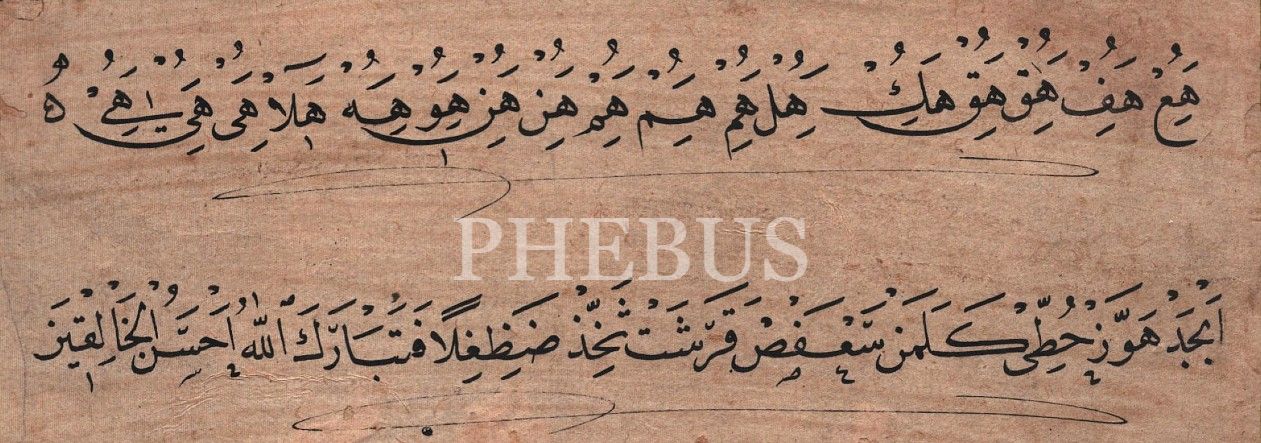 هع هف هق هق هك هل هم هم هم هن هن هو هه هلا هى هى هى
PHEBUS
اَبْجَدْ هَوَّزْ حُطِّى كَلَمَنْ سَعْفَصْ قَرَشَتْ ثَخَّذْ ضَظَغِلًا فَتَبَارَكَ اللّٰهُ اَحْسَنُ الْخَالِقِينَ